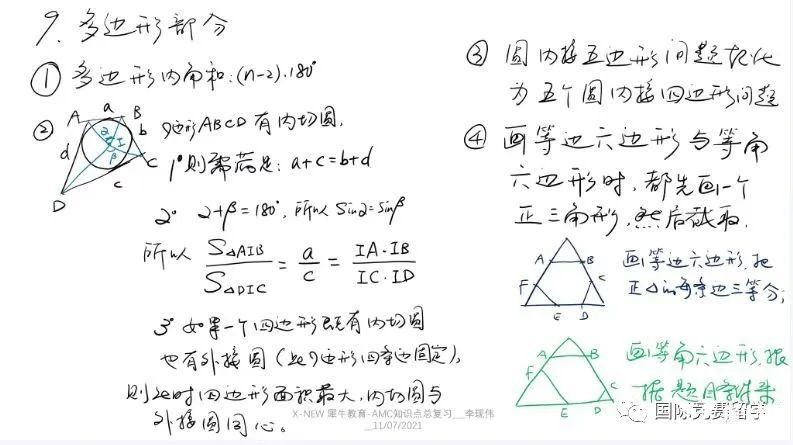 9. 多边形部分
① 多边形内角和:(n-2)·180°
②
A a B
b
d
C
c
D
α
I
β
四边形ABCD有内切圆.
1° 则需满足: a+c=b+d
2° α+β=180°, 所以 Sinα=Sinβ
所以 S△AIB/S△DIC = a/c = IA·IB/IC·ID
3° 如果一个四边形既有内切圆
也有外接圆(此四边形四条边固定),
则此时四边形面积最大,内切圆与
外接圆同心。
③ 圆内接五边形问题转化
为五个圆内接四边形问题
④ 画等边六边形与等角
六边形时,都先画一个
正三角形,然后截取.
A B
F C
E D
画等边六边形,把
正△的每条边三等分;
A B
F
C
E D
画等角六边形,根
据题目条件来
X-NEW 犀牛教育-AMC知识点总复习__李现伟
__11/07/2021
国际竞赛留学